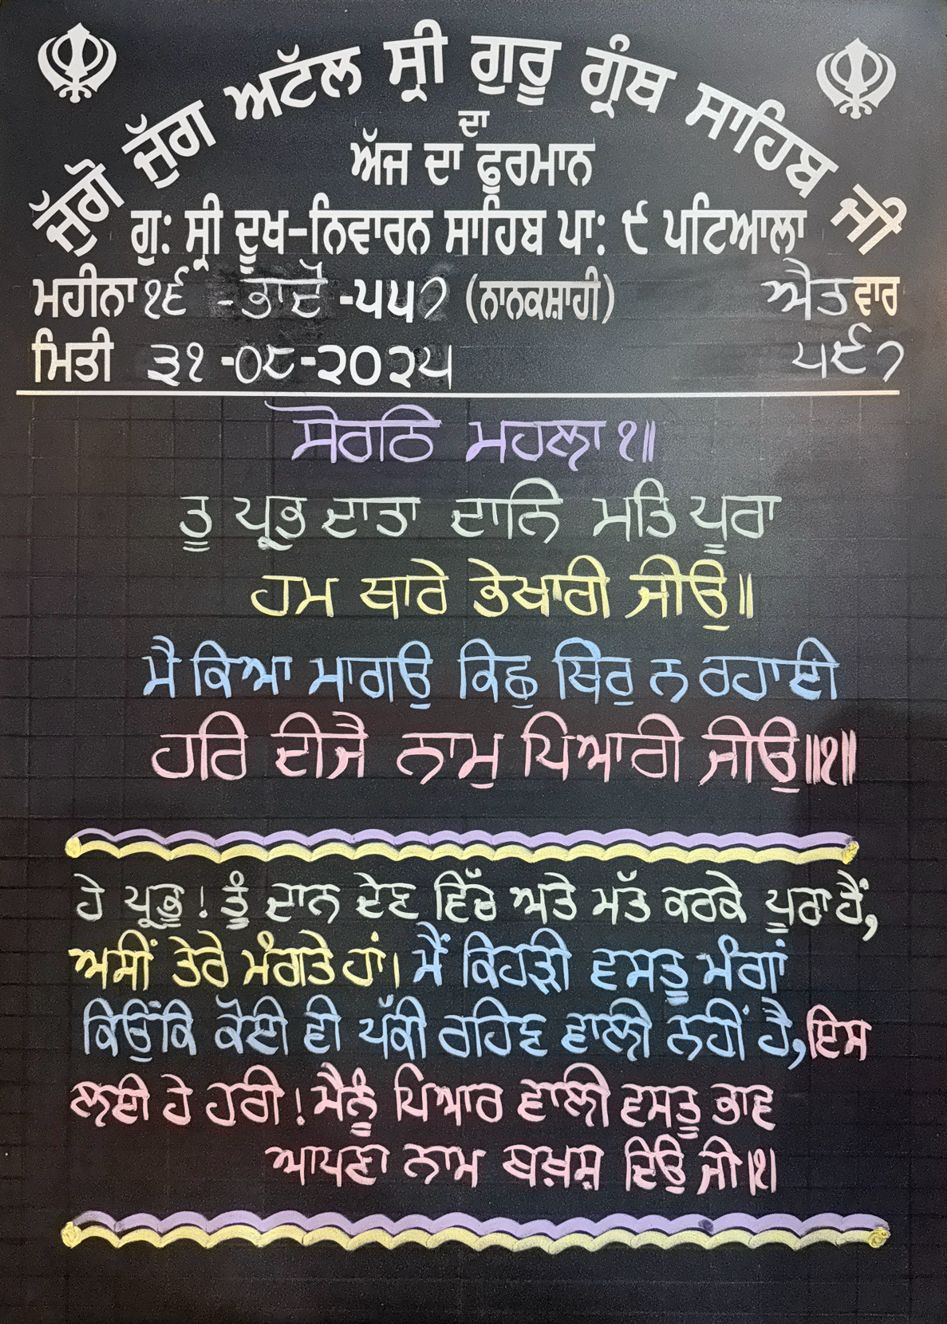 ਜੁੱਗੋ ਜੁੱਗ ਅਟੱਲ ਸ੍ਰੀ ਗੁਰੂ ਗ੍ਰੰਥ ਸਾਹਿਬ ਜੀ
ਦਾ
ਅੱਜ ਦਾ ਫੁਰਮਾਨ
ਗੁ: ਸ੍ਰੀ ਦੂਖ-ਨਿਵਾਰਨ ਸਾਹਿਬ ਪਾ: ੯ ਪਟਿਆਲਾ
ਮਹੀਨਾ ੧੬ - ਭਾਦੋਂ -੫੫੭ (ਨਾਨਕਸ਼ਾਹੀ) ਐਤਵਾਰ
ਮਿਤੀ ੩੧ -੦੮-੨੦੨੫ ੫੯੭
ਸੋਰਠਿ ਮਹਲਾ ੧॥
ਤੂ ਪ੍ਰਭ ਦਾਤਾ ਦਾਨਿ ਮਤਿ ਪੂਰਾ
ਹਮ ਥਾਰੇ ਭੇਖਾਰੀ ਜੀਉ॥
ਮੈ ਕਿਆ ਮਾਗਉ ਕਿਛੁ ਥਿਰੁ ਨ ਰਹਾਈ
ਹਰਿ ਦੀਜੈ ਨਾਮੁ ਪਿਆਰੀ ਜੀਉ॥੧॥
ਹੇ ਪ੍ਰਭੂ! ਤੂੰ ਦਾਨ ਦੇਣ ਵਿੱਚ ਅਤੇ ਮੱਤ ਕਰਕੇ ਪੂਰਾ ਹੈਂ,
ਅਸੀਂ ਤੇਰੇ ਮੰਗਤੇ ਹਾਂ। ਮੈਂ ਕਿਹੜੀ ਵਸਤੂ ਮੰਗਾਂ
ਕਿਉਂਕਿ ਕੋਈ ਵੀ ਪੱਕੀ ਰਹਿਣ ਵਾਲੀ ਨਹੀਂ ਹੈ, ਇਸ
ਲਈ ਹੇ ਹਰੀ! ਮੈਨੂੰ ਪਿਆਰ ਵਾਲੀ ਵਸਤੂ ਭਾਵ
ਆਪਣਾ ਨਾਮ ਬਖ਼ਸ਼ ਦਿਉ ਜੀ।੧।